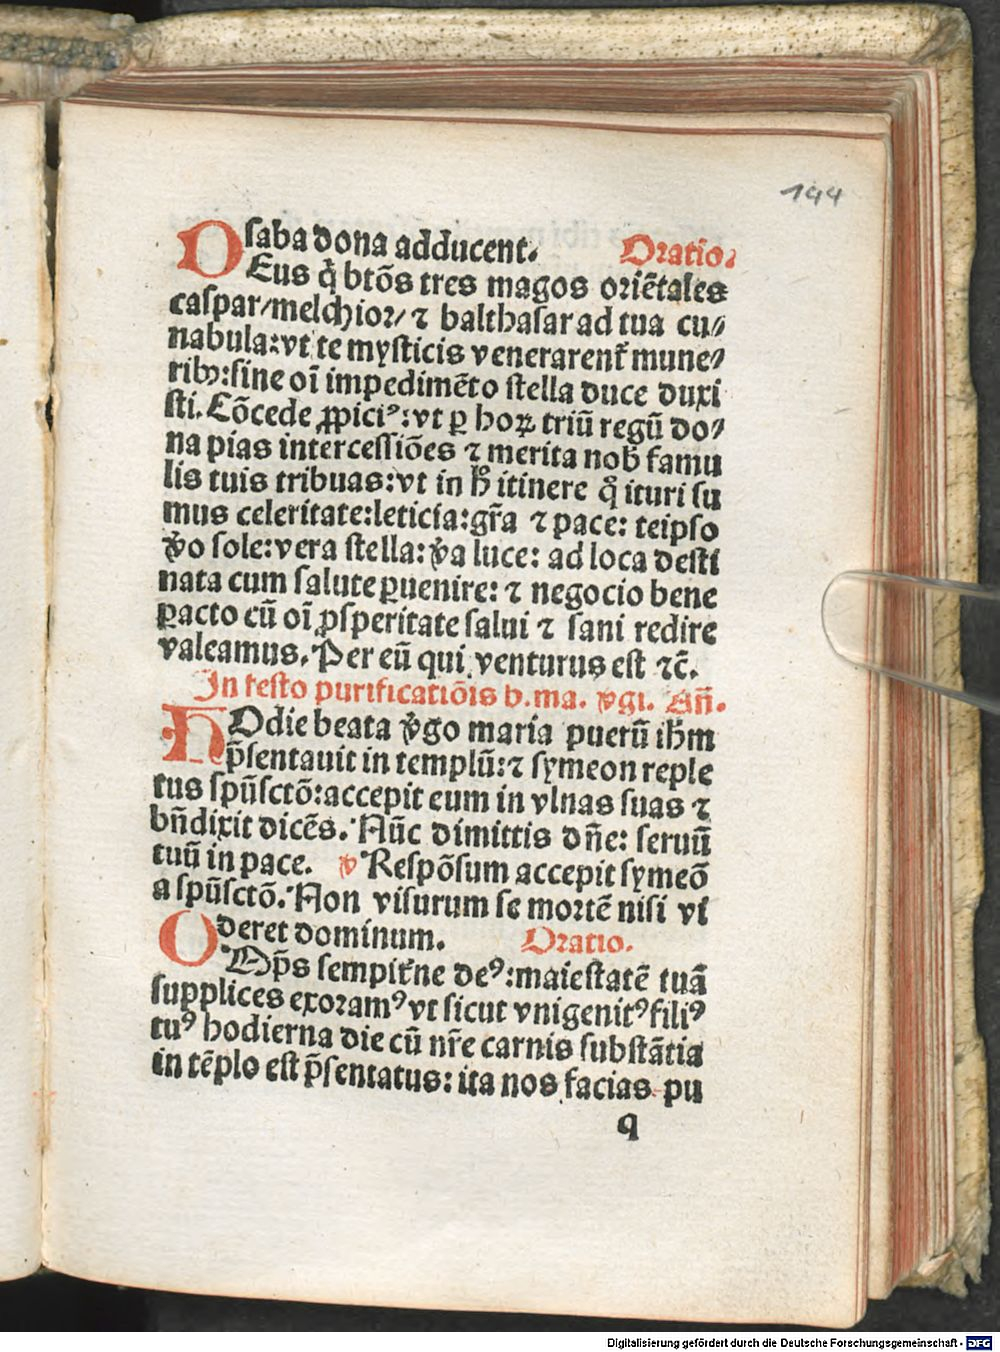 144
saba dona adducent. Oratio.
DEus q̇ btõs tres magos oriẽtales
caſpar/melchior/ ⁊ balthaſar ad tua cu⸗
nabula:vt te myſticis venerarentᷣ mune⸗
ribꝰ:ſine oĩ impedimẽto ſtella duce duxi
ſti. Cõcede ꝓpiciꝰ:vt ꝑ hoꝝ triũ regũ do⸗
na pias interceſſiões ⁊ merita nob̃ famu
lis tuis tribuas:vt in h̃ itinere q̊ ituri ſu
mus celeritate:leticia:gr̃a ⁊ pace: teipſo
v̊o ſole:vera ſtella: v̊a luce: ad loca deſti
nata cum ſalute ꝑuenire: ⁊ negocio bene
ꝑacto cũ oĩ ꝓſperitate ſalui ⁊ ſani redire
valeamus. Per eũ qui venturus eſt ⁊c̃.
In feſto purificatiõis b.ma. v̊gi. Añ.
HOdie beata v̊go maria puerũ ih̃m
p̃ſentauit in templũ:⁊ ſymeon reple
tus ſpũſctõ:accepit eum in vlnas ſuas ⁊
bñdixit dicẽs. Nũc dimittis dñe: ſeruũ
tuũ in pace. ℣ Reſpõſum accepit ſymeõ
a ſpũſctõ. Non viſurum ſe mortẽ niſi vi
deret dominum. Oratio.
OMp̃s ſempitᷣne deꝰ:maieſtatẽ tuã
ſupplices exoramꝰ vt ſicut vnigenitꝰ filiꝰ
tuꝰ hodierna die cũ nr̃e carnis ſubſtãtia
in tẽplo eſt p̃ſentatus: ita nos facias pu
q
Digitalisierung gefördert durch die Deutsche Forschungsgemeinschaft - DFG